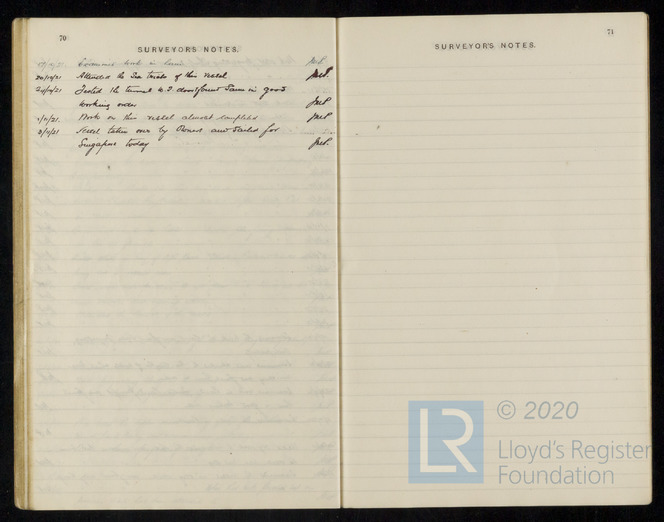 70
SURVEYOR'S NOTES.
work in hand
20/10/21 Attended the Sea trials of this vessel
Tested the tunnel W.T. door found same in good
working order
1/11/21. Work on this vessel almost completed
2/11/21 Vessel taken over by Owners and sailed for
Singapore today
71
SURVEYOR'S NOTES.
LR
© 2020
Lloyd's Register
Foundation